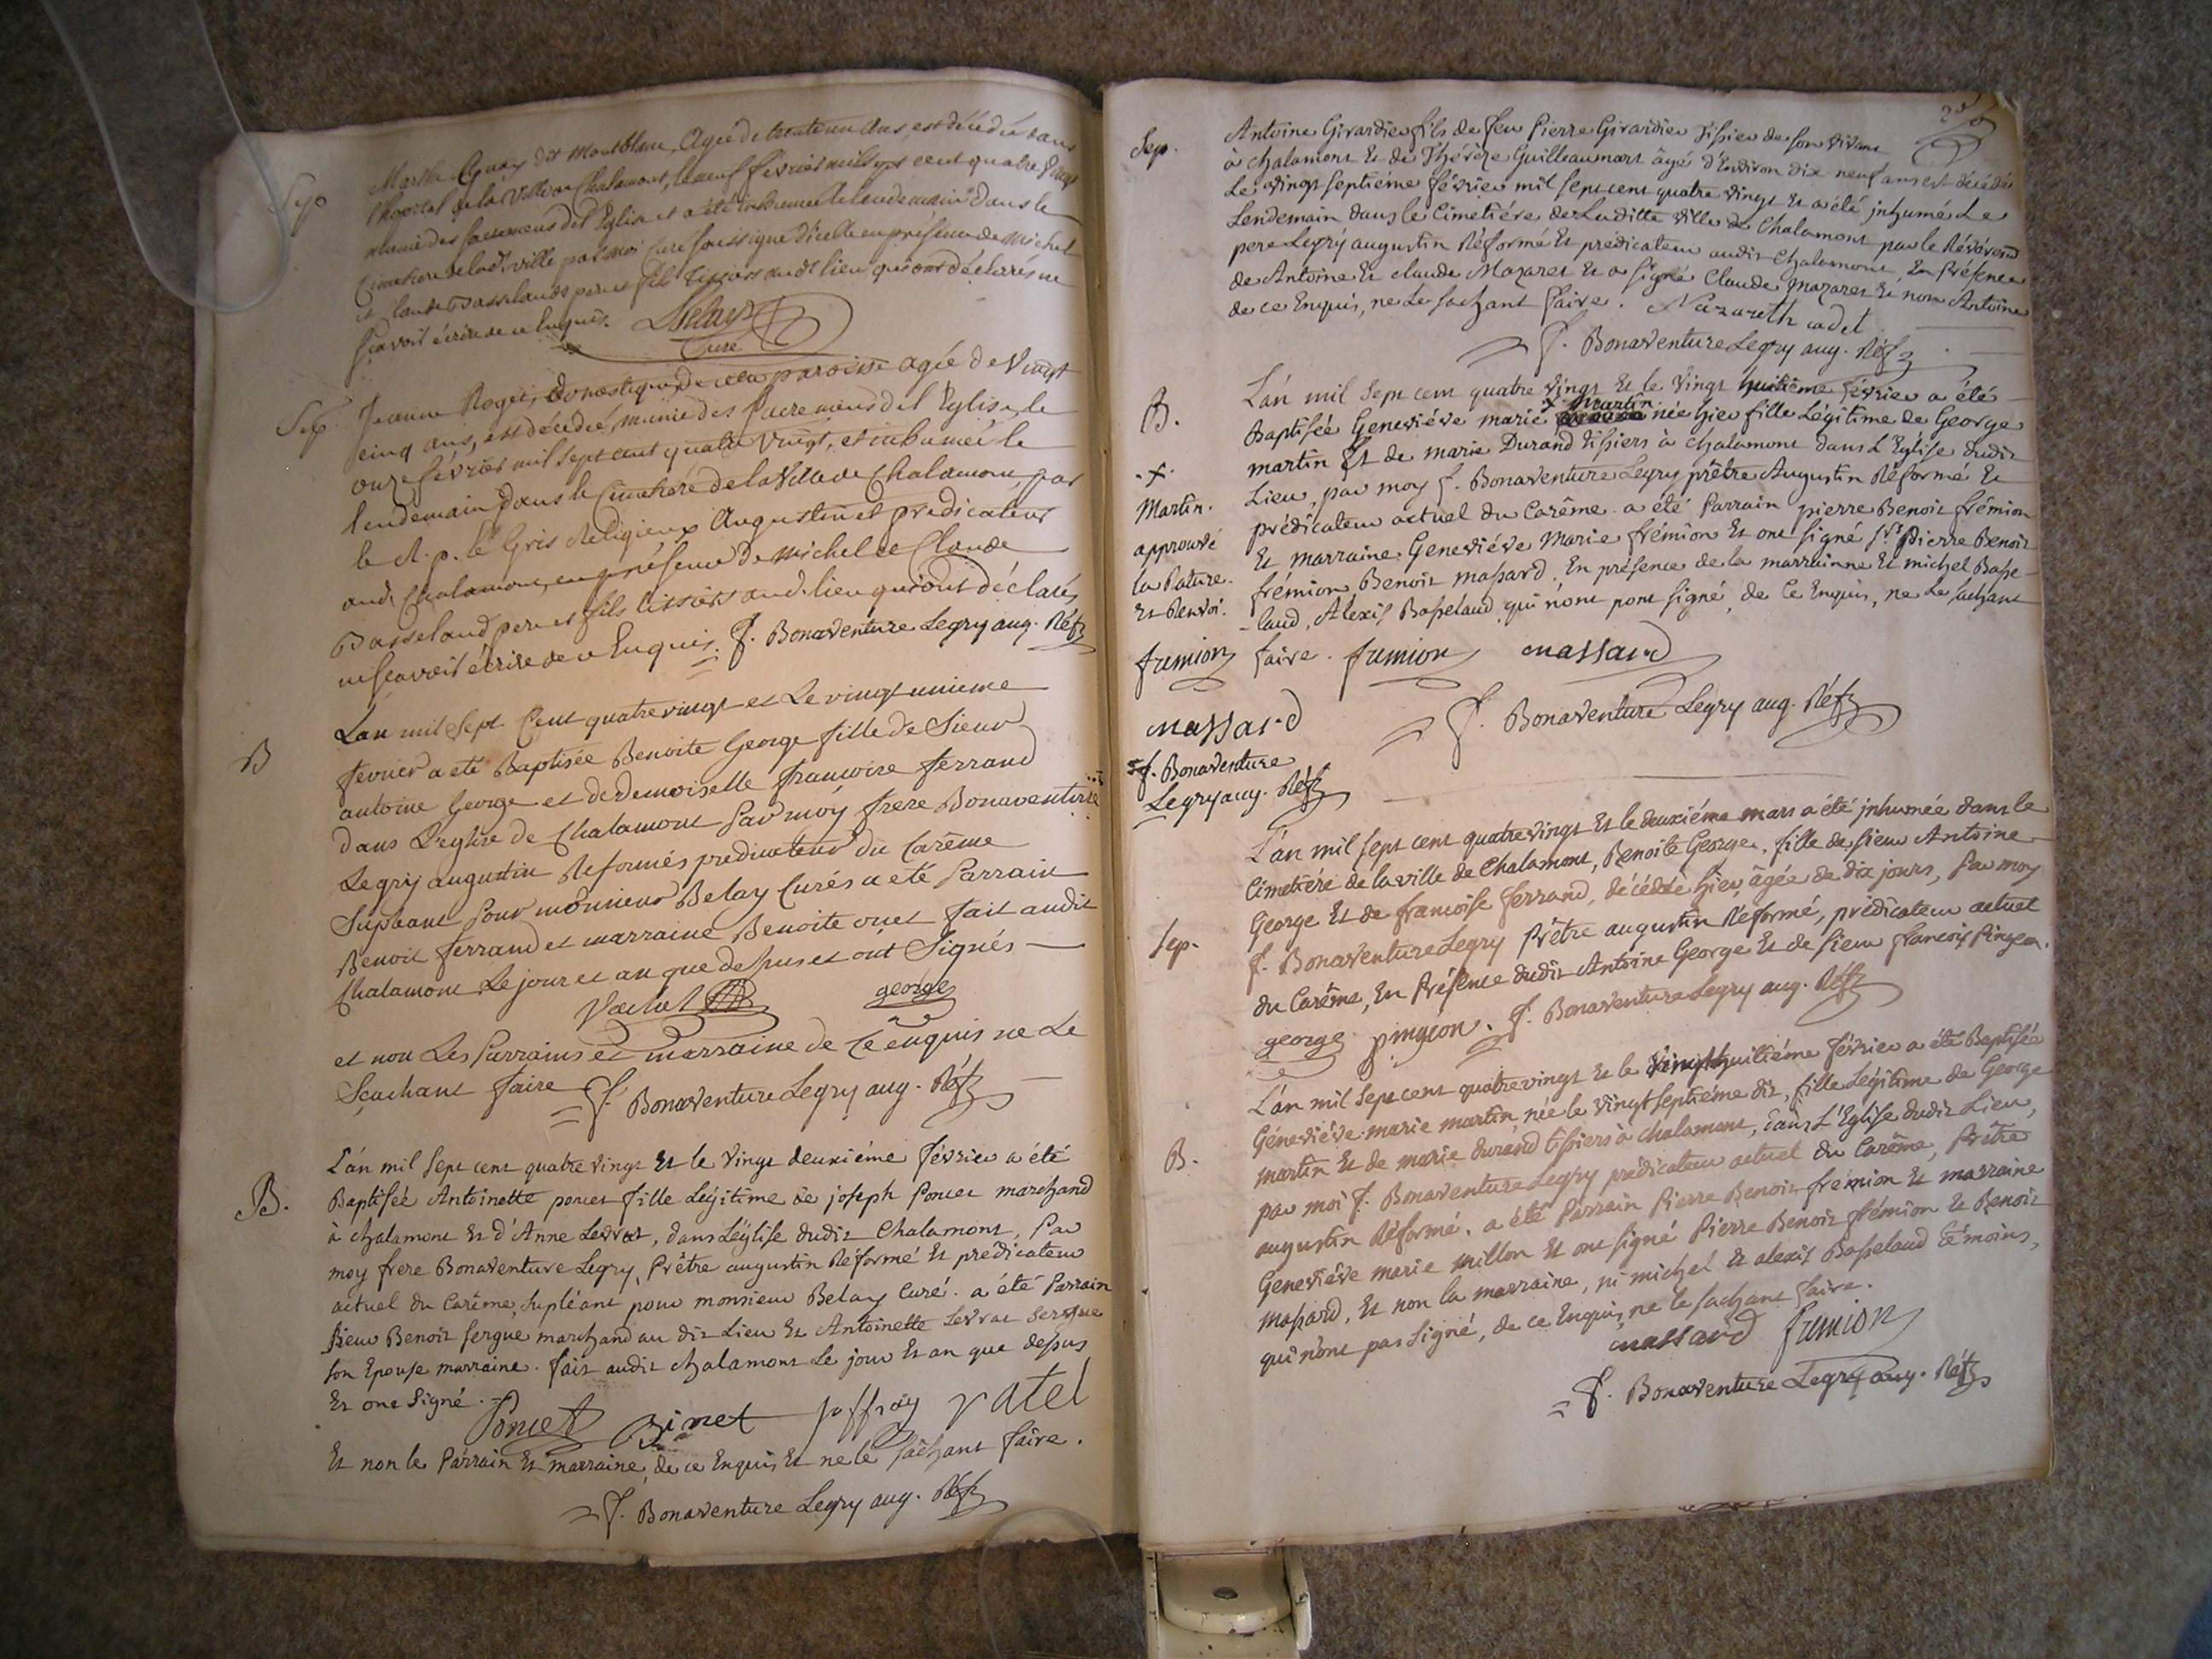 Sep
Marthe dit Montblanc, Agée de trente un Ans, est décédée dans
l'hopital de la Ville de Chalamont, le neuf fevrier mil sept cent quatre Vingt
munie des sacremens de l'Eglise et a été inhumée le lendemain dans le
Cimetiere de ladt ville par moi Curé soussigné d'icelle en présence de Michel
et Claude Basselaud pere et fils tissiers audt lieu qui ont déclarés ne
sçavoir écrire de ce Enquis.
Curé
Sep.
Jeanne Roget, domestique de cette paroisse agée de Vingt
cinq ans, est décédée, munie des Sacremens de l'Eglise, le
onze février mil sept cent quatre Vingt, et inhumée le
lendemain dans le Cimetiere de la Ville de Chalamont, par
le R. p. le Gris Religieux Augustin et predicateur
audt Chalamont, en présence de Michel et Claude
Basselaud pere et fils tissiers audt lieu qui ont déclarés
ne sçavoir écrire de ce Enquis. f. Bonaventure Legry aug. Réf.
B
L'an mil Sept Cent quatre vingt et Le vingt unieme
fevrier a eté Baptisée Benoite George fille de Sieur
antoine George et de demoiselle françoise ferrand
dans L'eglise de Chalamont Par moy frere Bonaventure
Legry augustin Reformés predicateur du Carême
Supleant pour monsieur Belay Curés a eté Parrain
Benoit ferrand et marraine Benoite fait audit
Chalamont Le jour et an que dessus et ont Signés
george
et non Les Parrains et marraine de ce enquis ne Le
Sçachant faire f. Bonaventure Legry aug. Réf.
B.
L'an mil sept cent quatre vingt Et le vingt deuxiéme février a été
Baptisée Antoinette poncet fille Légitime de joseph Poncet marchand
à chalamont Et d'Anne Levrat, dans L'église dudit Chalamont, Par
moy frere Bonaventure Legry, Prêtre augustin Réformé Et prédicateur
actuel du Carême, Supléant pour monsieur Belay Curé. a été Parrain
sieur Benoit sergue marchand au dit Lieu Et Antoinette Levrat sergue
son Epouse marraine. fait audit chalamont Le jour Et an que dessus
Et ont Signé.
Poncet Binet joffray vatel
Et non le Parrain Et marraine, de ce Enquis Et ne le sachant faire.
f. Bonaventure Legry aug. Réf.
Sep.
Antoine Girardier fils de feu Pierre Girardier Tissier de son vivant
à chalamont Et de Thérèse Guilleaumart âgé d'Environ dix neuf ans est décédé
Le vingt septiéme février mil sept cent quatre vingt Et a été inhumé Le
Lendemain dans le Cimetiére de Laditte Ville de Chalamont par le Révérend
pere Legry augustin Réformé Et prédicateur audit Chalamont, En Présence
de Antoine Et claude Mazaret Et a signé Claude Mazaret Et non Antoine
de ce Enquis, ne Le sachant faire. Nazareth cadet
f. Bonaventure Legry aug. Réf.
B.
L'an mil Sept cent quatre vingt Et le vingt huitième février a été
Baptisée Geneviéve marie martin née hier fille Légitime de George
martin Et de marie Durand tissiers à chalamont dans L'Eglise dudit
Lieu, par moy f. Bonaventure Legry prêtre Augustin Réformé Et
prédicateur actuel du Carême. a été Parrain pierre Benoit frémion
Et marraine Geneviéve Marie frémion Et ont signé Srs Pierre Benoit
frémion, Benoit massard. En présence de la marrainne Et michel Basse-
-laud, Aléxis Basselaud, qui n'ont point signé, de Ce Enquis, ne Le sachant
faire. fremion massard
f. Bonaventure Legry aug. Réf.
+.
Martin.
approuvé
la Rature.
Et Renvoi.
fremion
massard
f. Bonaventure
Legry aug. Réf.
Sep.
L'an mil sept cent quatre vingt Et le deuxiéme mars a été inhumée dans le
Cimetiére de la ville de Chalamont, Benoite George, fille de sieur Antoine
George Et de francoise ferrand, décédée hier, âgée de dix jours, Par moy
f. Bonaventure Legry Prêtre augustin Réformé, prédicateur actuel
du Carême, En Présence dudit Antoine George Et de sieur francois Pingeon.
george pingeon. f. Bonaventure Legry aug. Réf.
B.
L'an mil Sept cent quatre vingt Et le vingt huitiéme février a été Baptisée
Généviéve marie martin, née le vingt septiéme dit, fille Légitime de George
martin Et de marie durand tissiers à chalamont, dans L'Eglise dudit Lieu,
par moi f. Bonaventure Legry prédicateur actuel du Carême, Prêtre
augustin Réformé. a été Parrain Pierre Benoit frémion Et marraine
Geneviéve marie millon Et ont signé Pierre Benoit frémion Et Benoit
massard, Et non la marraine, ni michel Et alexis Basselaud témoins,
qui n'ont pas Signé, de ce Enquis ne le sachant faire.
massard fremion
f. Bonaventure Legry aug. Réf.